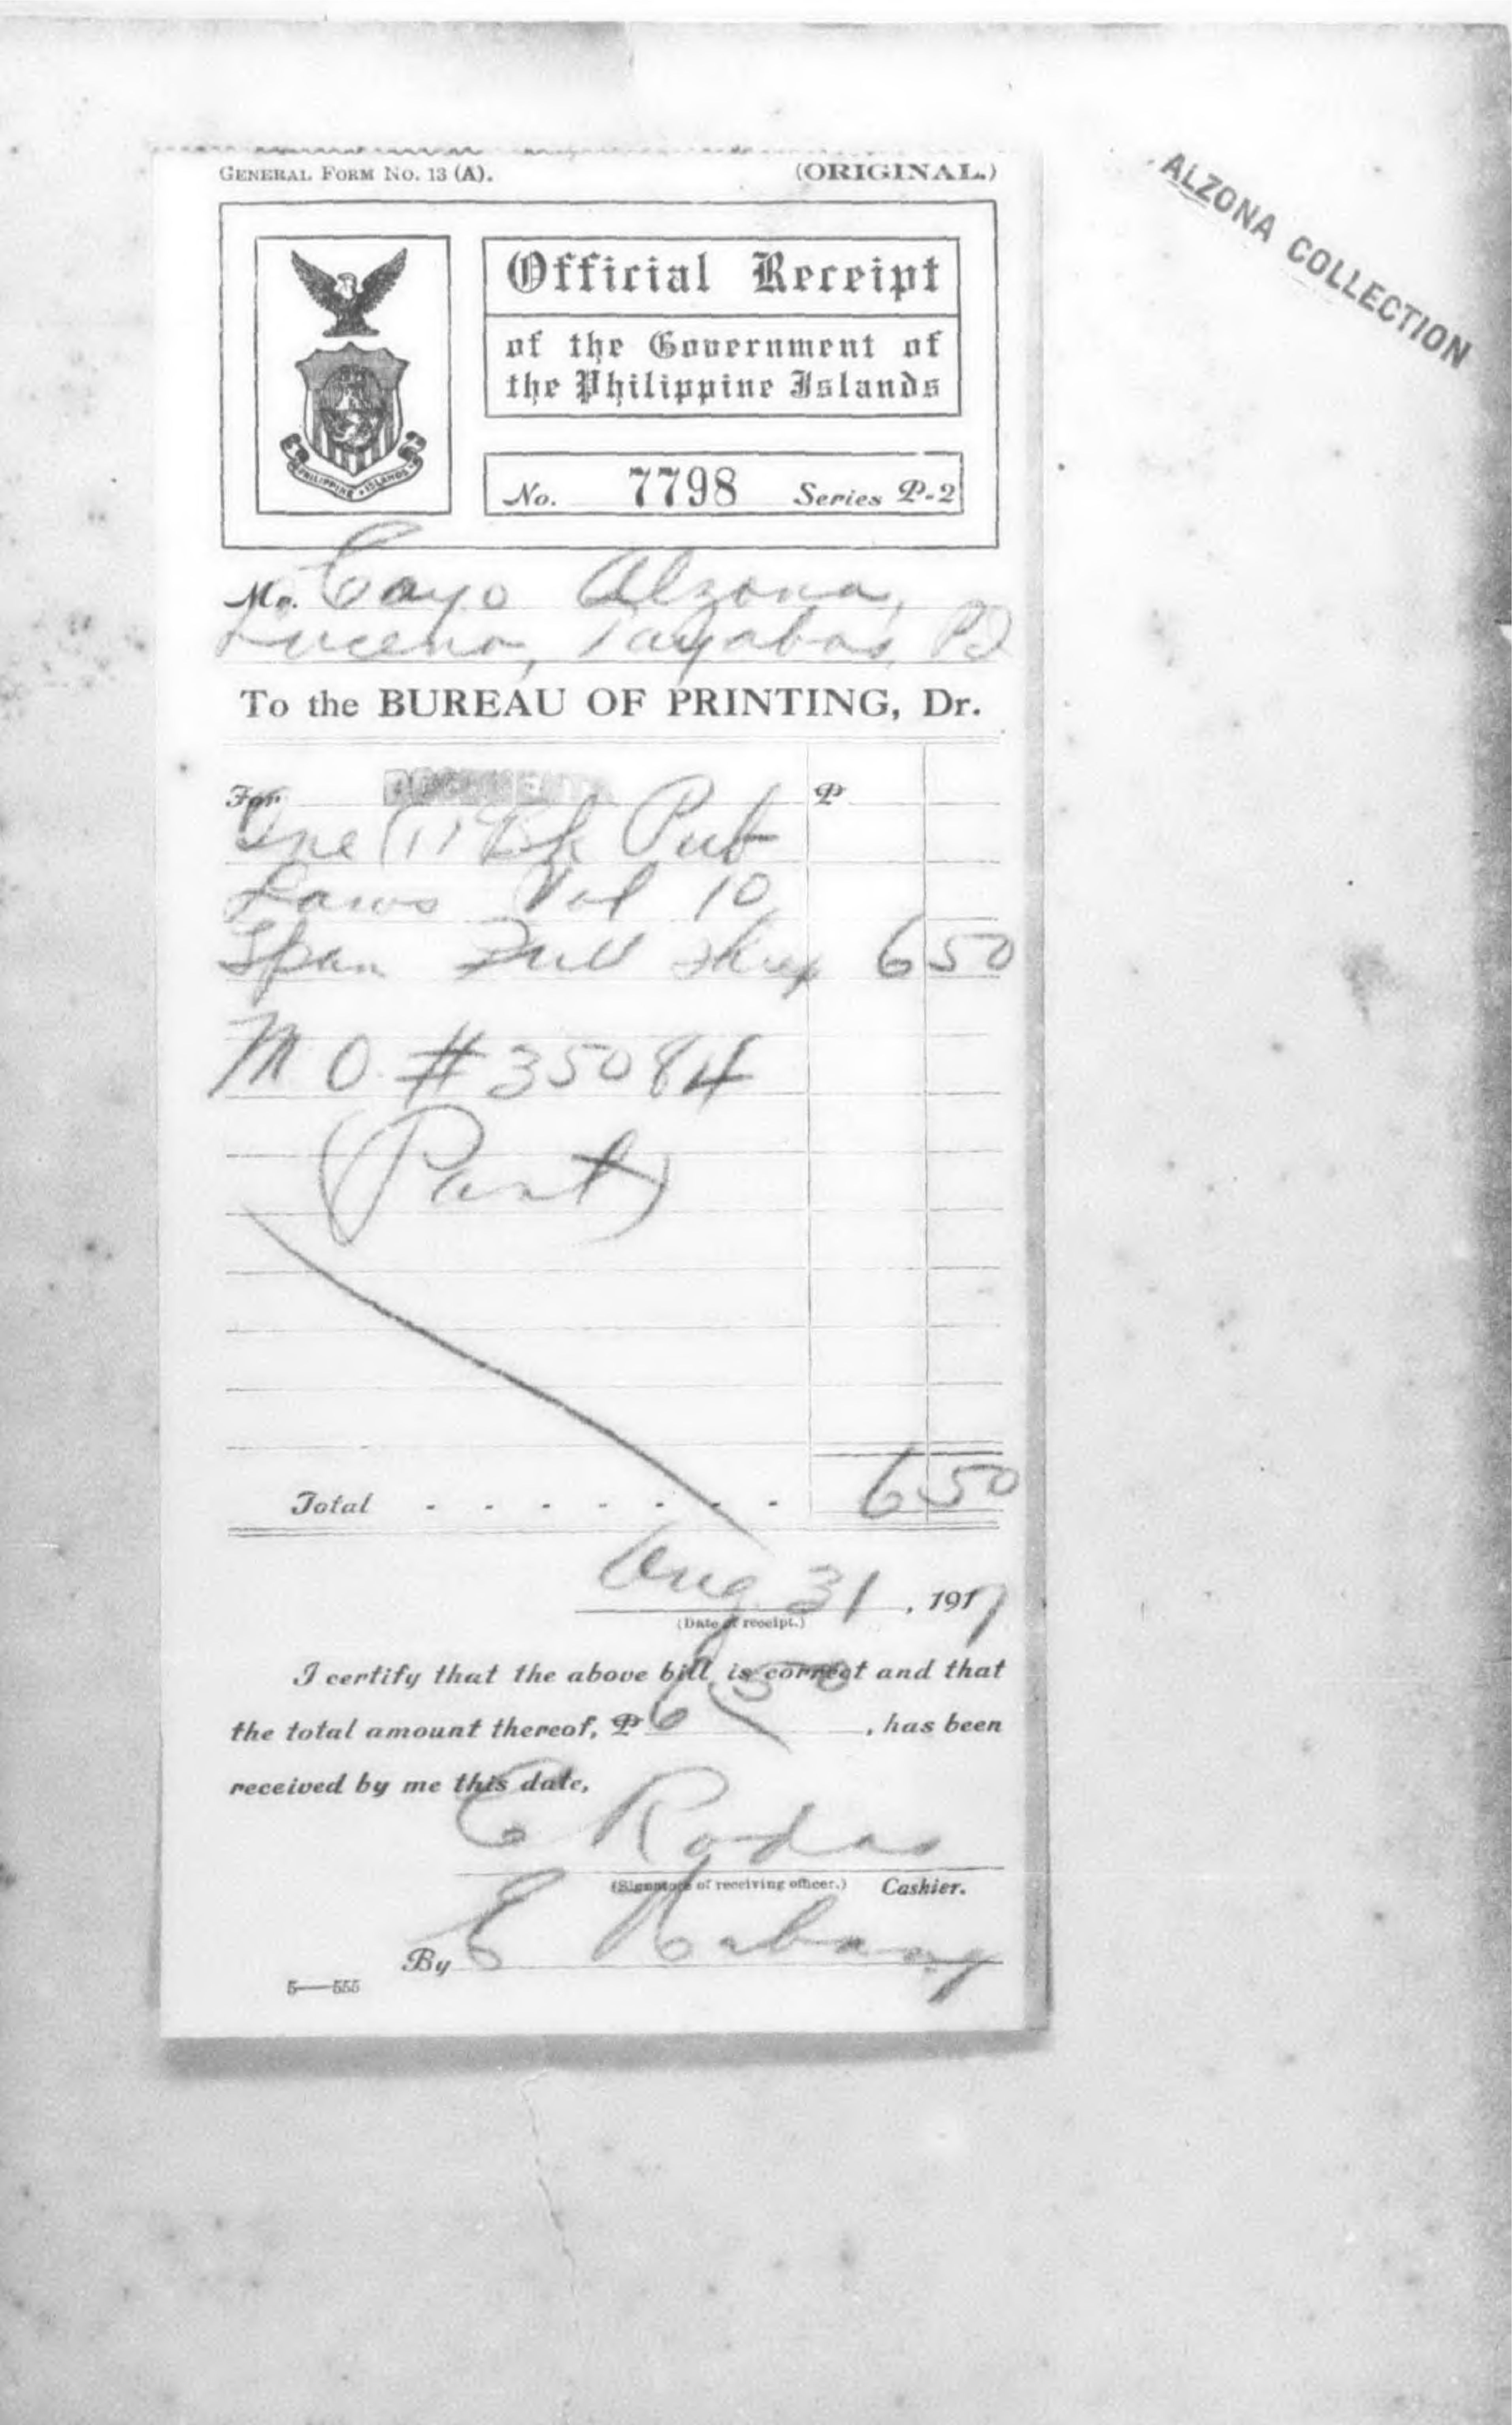 GENERAL FORM NO. 13 (A).
(ORIGINAL.)
ALZONA COLLECTION
Official Receipt
of the Government of
the Philippine Islands
PHILIPPINE ISLANDS
No. 7798 Series P-2
Mr. Cayo Alzona,
Lucena, Tayabas, P.I.
To the BUREAU OF PRINTING, Dr.
DOCUMENTS
For ₱
One (1) Bk Pub
Laws Vol 10
Span Full Shep 6 50
M O. # 35084
(Part)
Total - - - - - - - 6 50
Aug. 31, 1917
(Date of receipt.)
I certify that the above bill is correct and that
the total amount thereof, ₱ 6 50, has been
received by me this date,
C Rodas
(Signature of receiving officer.) Cashier.
By E
5—555